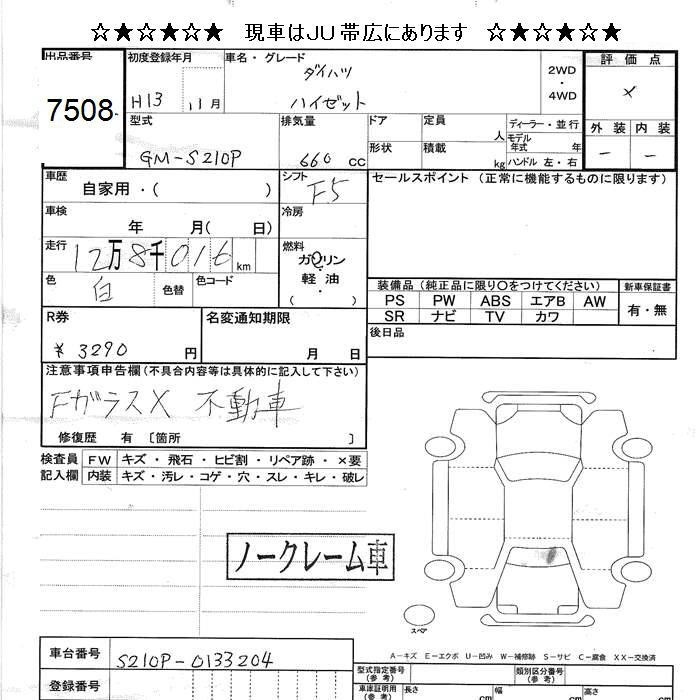 ☆★☆★☆★ 現車はJU帯広にあります ☆★☆★☆★
出品番号 初度登録年月 車名・グレード 評価点
7508 H13 11月 ダイハツ ハイゼット 2WD・4WD ×
型式 排気量 ドア 定員 人 ディーラー・並行 外装 内装
GM-S210P 660cc 形状 積載 kg モデル年式 年 ハンドル 左・右 － －
車歴 シフト セールスポイント (正常に機能するものに限ります)
自家用・( ) F5
車検 冷房
年 月( 日)
走行 燃料
12万8千016km ガソリン・軽油・( )
色 色替 色コード 装備品(純正品に限り○をつけてください) 新車保証書
白 PS PW ABS エアB AW 有・無
SR ナビ TV カワ
R券 名変通知期限 後日品
¥3290円 月 日
注意事項申告欄(不具合内容等は具体的に記入して下さい)
Fガラス× 不動車
修復歴 有 〔箇所 〕
検査員 FW キズ・飛石・ヒビ割・リペア跡・×要
記入欄 内装 キズ・汚レ・コゲ・穴・スレ・キレ・破レ
ノークレーム車
スペア
A－キズ E－エクボ U－凹み W－補修跡 S－サビ C－腐食 XX－交換済
車台番号 S210P-0133204
型式指定番号(参考) 類別区分番号(参考)
登録番号 車庫証明用(参考) 長さ cm 幅 cm 高さ cm